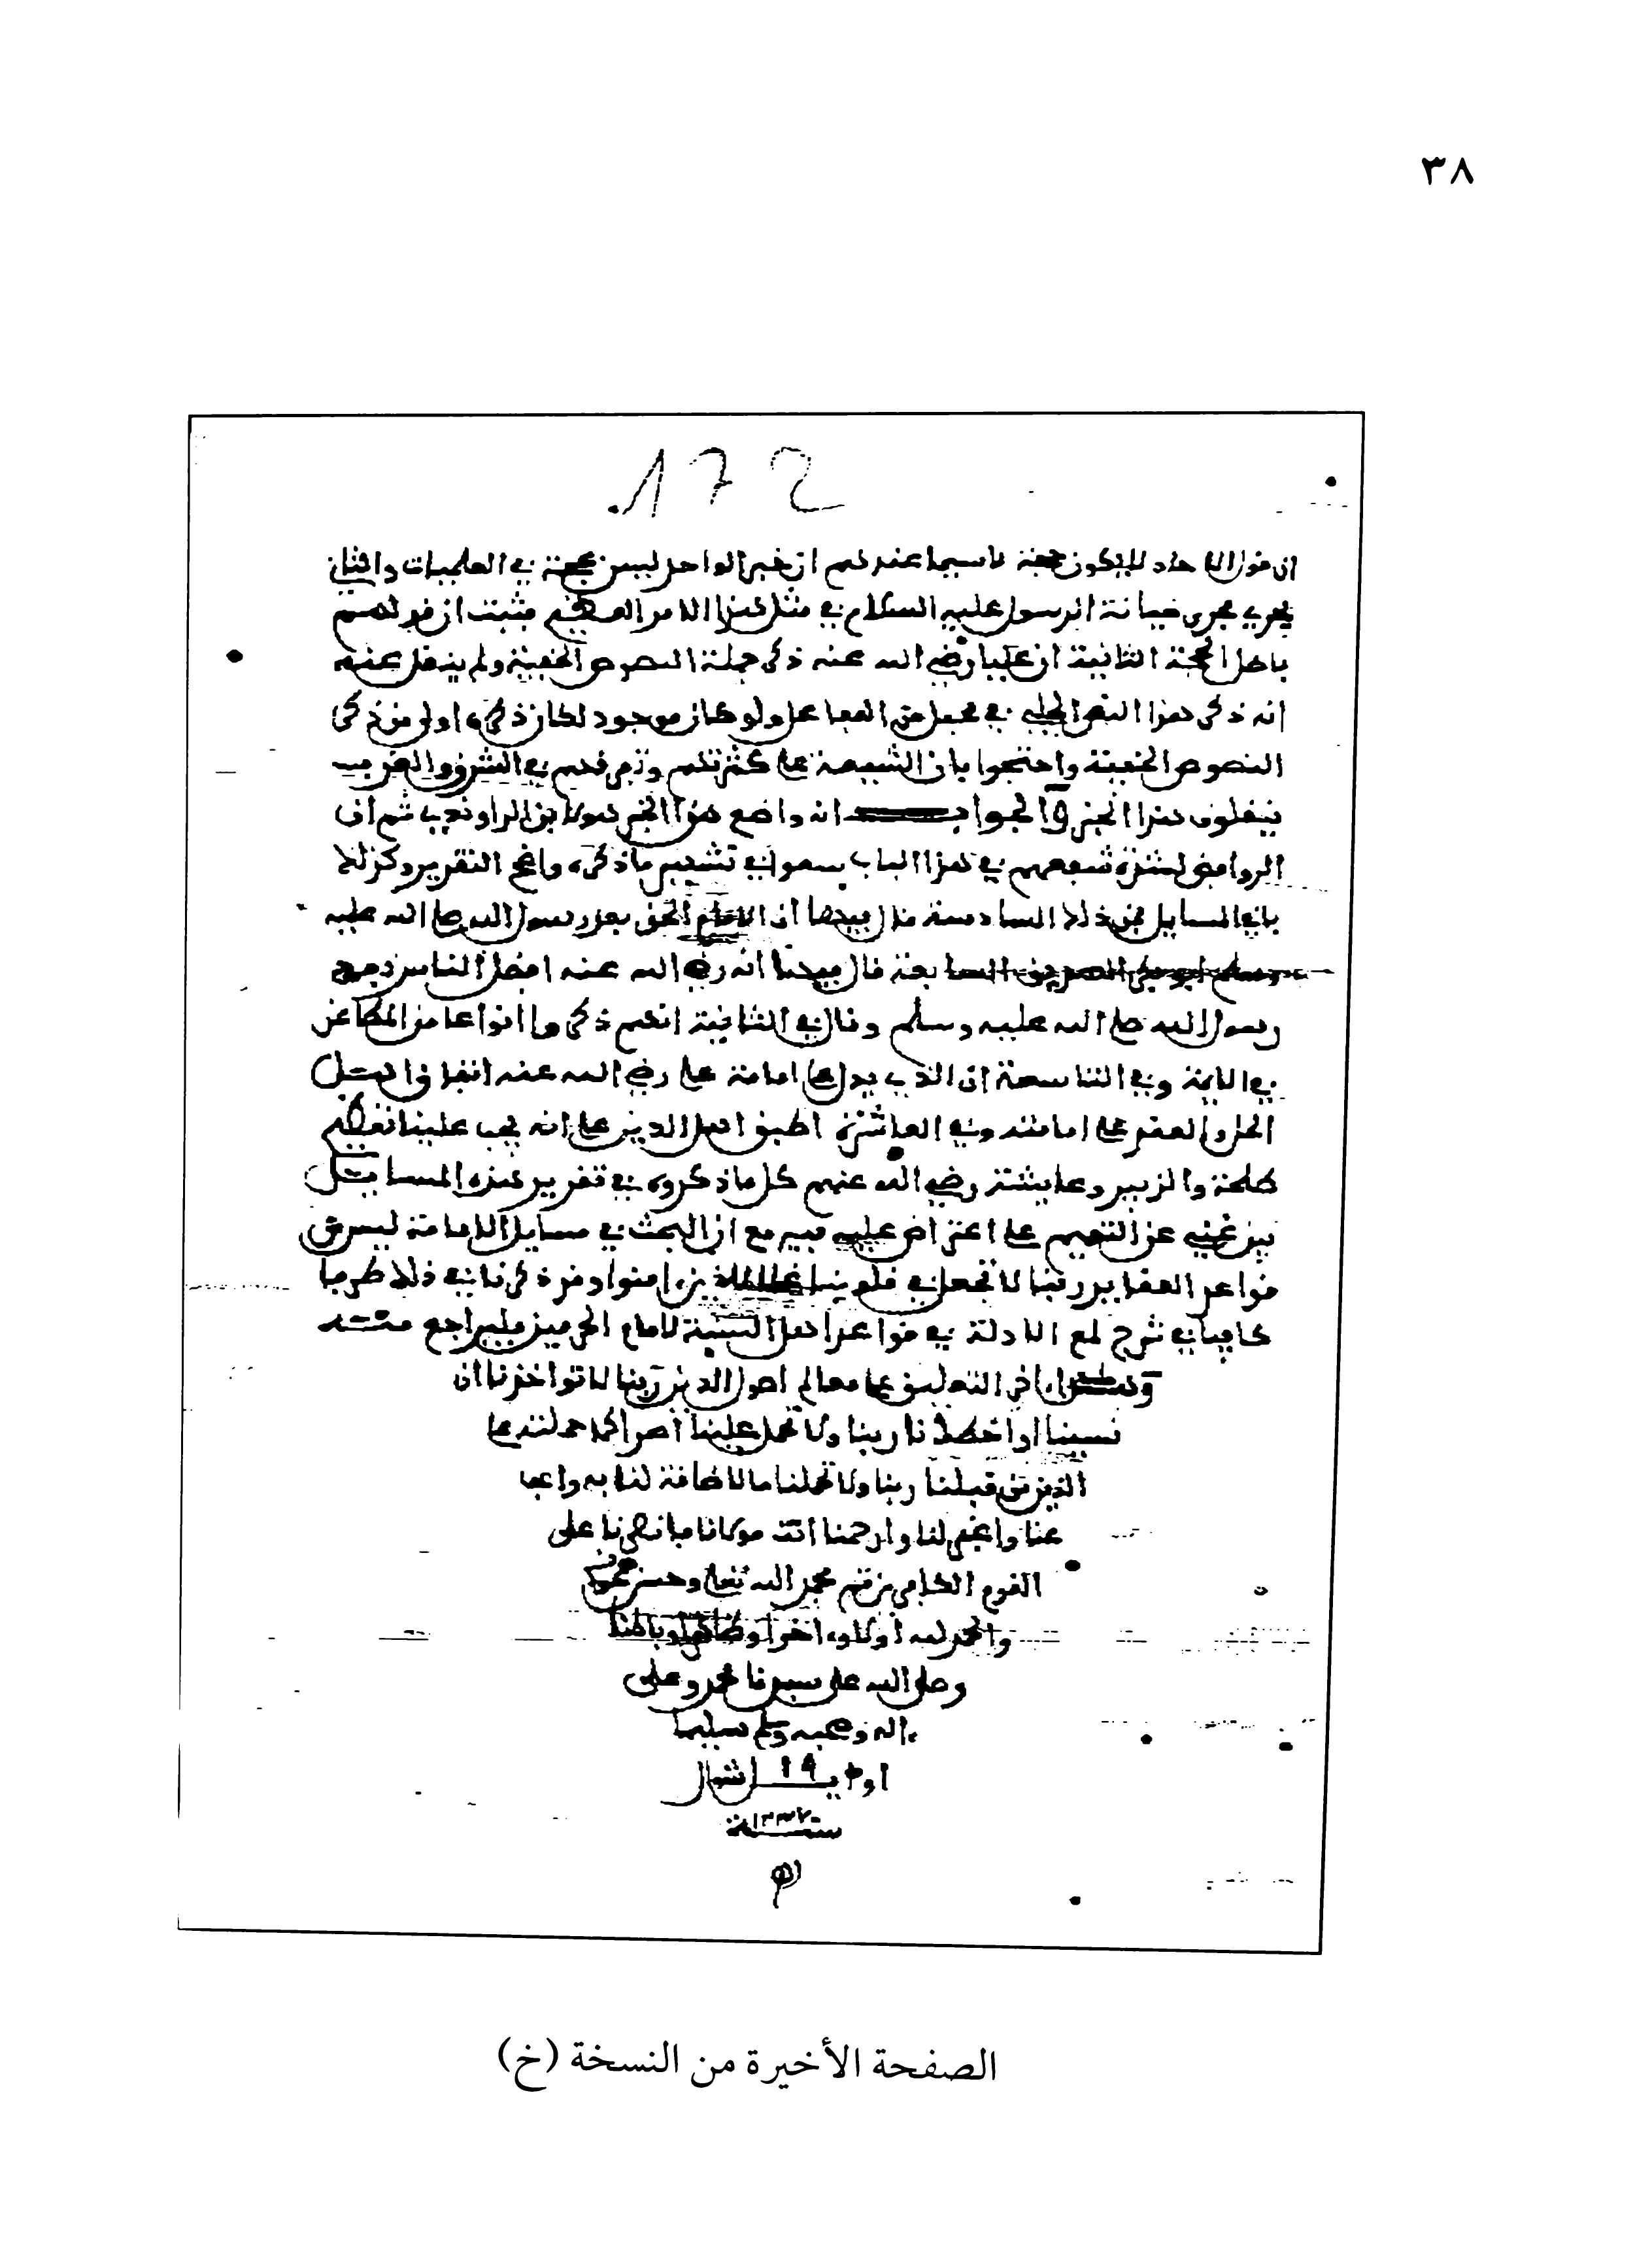 ٣٨
172
ان قول الاحاد لا يكون حجة لا سيما عندهم ان خبر الواحد ليس بحجة في العلميات والثاني
يجري مجرى خيانة الرسول عليه السلام في مثل هذا الامر العظيم فثبت ان قولهم
باطل الحجة الثانية ان عليا رضي الله عنه ذكر جملة النصوص الخفية ولم ينقل عنه
انه ذكر هذا النص الجلي في محفل من المحافل ولو كان موجود لكان ذكره اولى من ذكر
النصوص الخفية واحتجوا بان الشيعة على كثرتهم وتفرقهم في الشرق والغرب
ينقلون هذا الخبر والجواب ان واضع هذا الخبر هو ابن الراوندي ثم ان
الروافض لشدة شغفهم في هذا الباب سعوا في تشهير ما ذكره واضح التقرير وكذلك
باقي المسايل فمن ذلك السادسة قال فيها ان الامام الحق بعد رسول الله صلى الله عليه
وسلم ابو بكر الصديق السابعة قال فيها انه رضي الله عنه افضل الناس بعد
رسول الله صلى الله عليه وسلم وقال في الثانية انهم ذكروا انواعا من المطاعن
في الايمة وفي التاسعة ان الذي يدل على امامة علي رضي الله عنه اتفاق اهل
الحل والعقد على امامته وفي العاشرة اطبق اهل الدين على انه يجب علينا تعظيم
طلحة والزبير وعايشة رضي الله عنهم كل ما ذكروه في تقرير هذه المسايل
بين غني عن التفهيم على اعتراض عليه فيه مع ان البحث في مسايل الامامة ليس من
قواعد العقايد ربنا لا تجعل في قلوبنا غلا للذين ءامنوا وقد ذكرنا في ذلك طرفا
كافيا في شرح لمع الادلة في قواعد اهل السنة لامام الحرمين فليراجع منه
وهذا ءاخر التعليق على معالم اصول الدين ربنا لا تواخذنا ان
نسينا او اخطأنا ربنا ولا تحمل علينا اصرا كما حملته على
الذين من قبلنا ربنا ولا تحملنا ما لا طاقة لنا به واعف
عنا واغفر لنا وارحمنا انت مولانا فانصرنا على
القوم الكافرين تم بحمد الله تعالى وحسن عونه
والحمد لله أولا وءاخرا وظاهرا وباطنا
وصلى الله على سيدنا محمد وعلى
ءاله وصحبه وسلم تسليما
١٩
سنة ١٣٣٧
الصفحة الأخيرة من النسخة (خ)